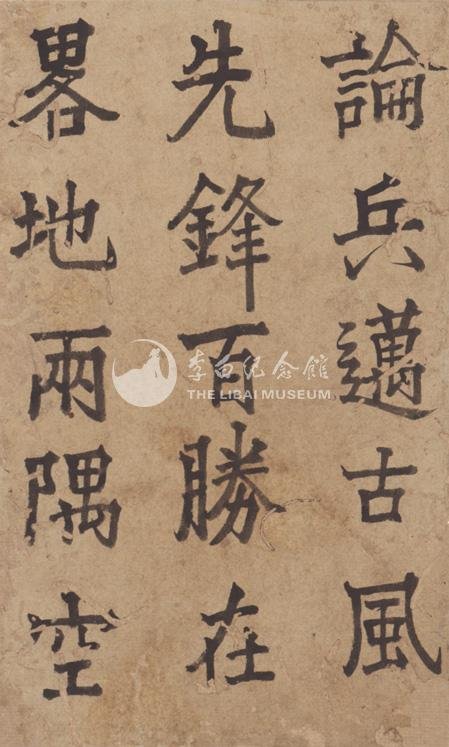 論兵邁古風
先鋒百勝在
畧地兩隅空
李白纪念馆
THE LIBAI MUSEUM